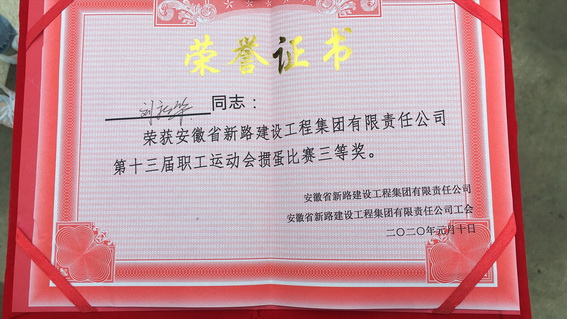 荣誉证书
刘新华 同志：
荣获安徽省新路建设工程集团有限责任公司
第十三届职工运动会掼蛋比赛三等奖。
安徽省新路建设工程集团有限责任公司
安徽省新路建设工程集团有限责任公司工会
二〇二〇年元月十日